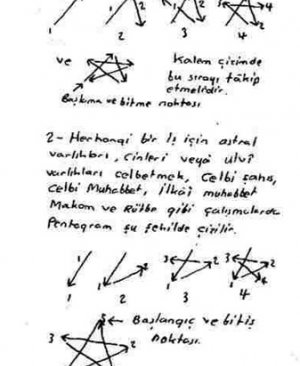 1 2 3 4
ve
Kalem çizimde
bu sırayı tâkip
etmelidir.
Başlama ve bitme noktası
2- Herhangi bir iş için astral
varlıkları, cinleri veya ulvî
varlıkları celbetmek, Celbi şahıs,
Celbi Muhabbet, ilkâi muhabbet
Makam ve Rütbe gibi çalışmalarda
Pentagram şu şekilde çizilir.
1 1 2 3 2 3 2
1 2 3 4
5 Başlangıç ve bitiş
noktası.
3 2